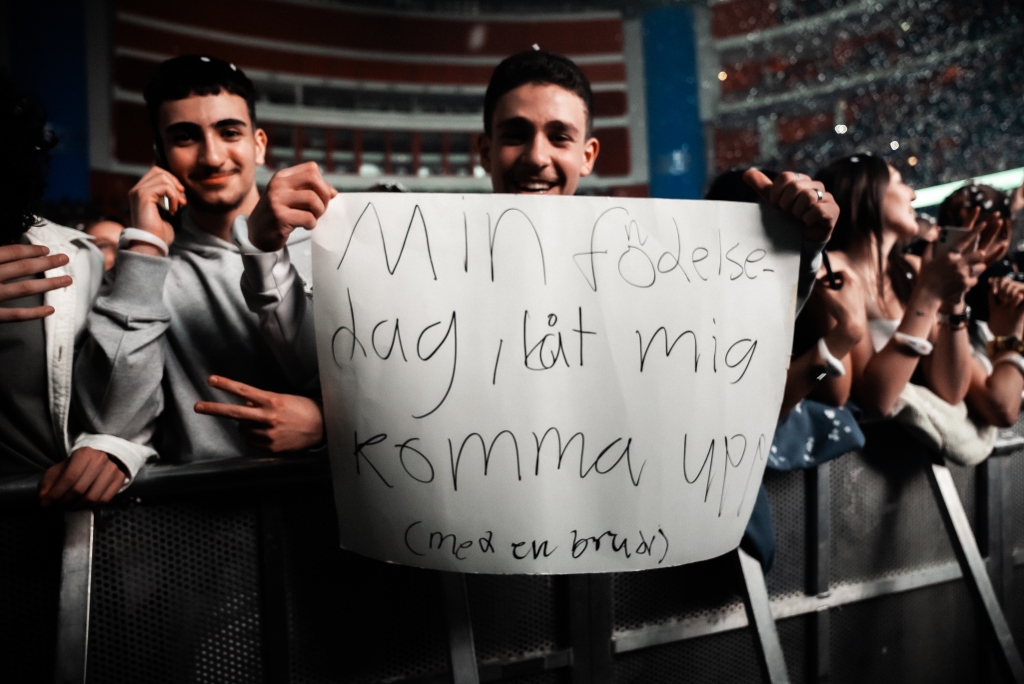 Min födelse-
dag, låt mig
komma upp
(med en brudr)